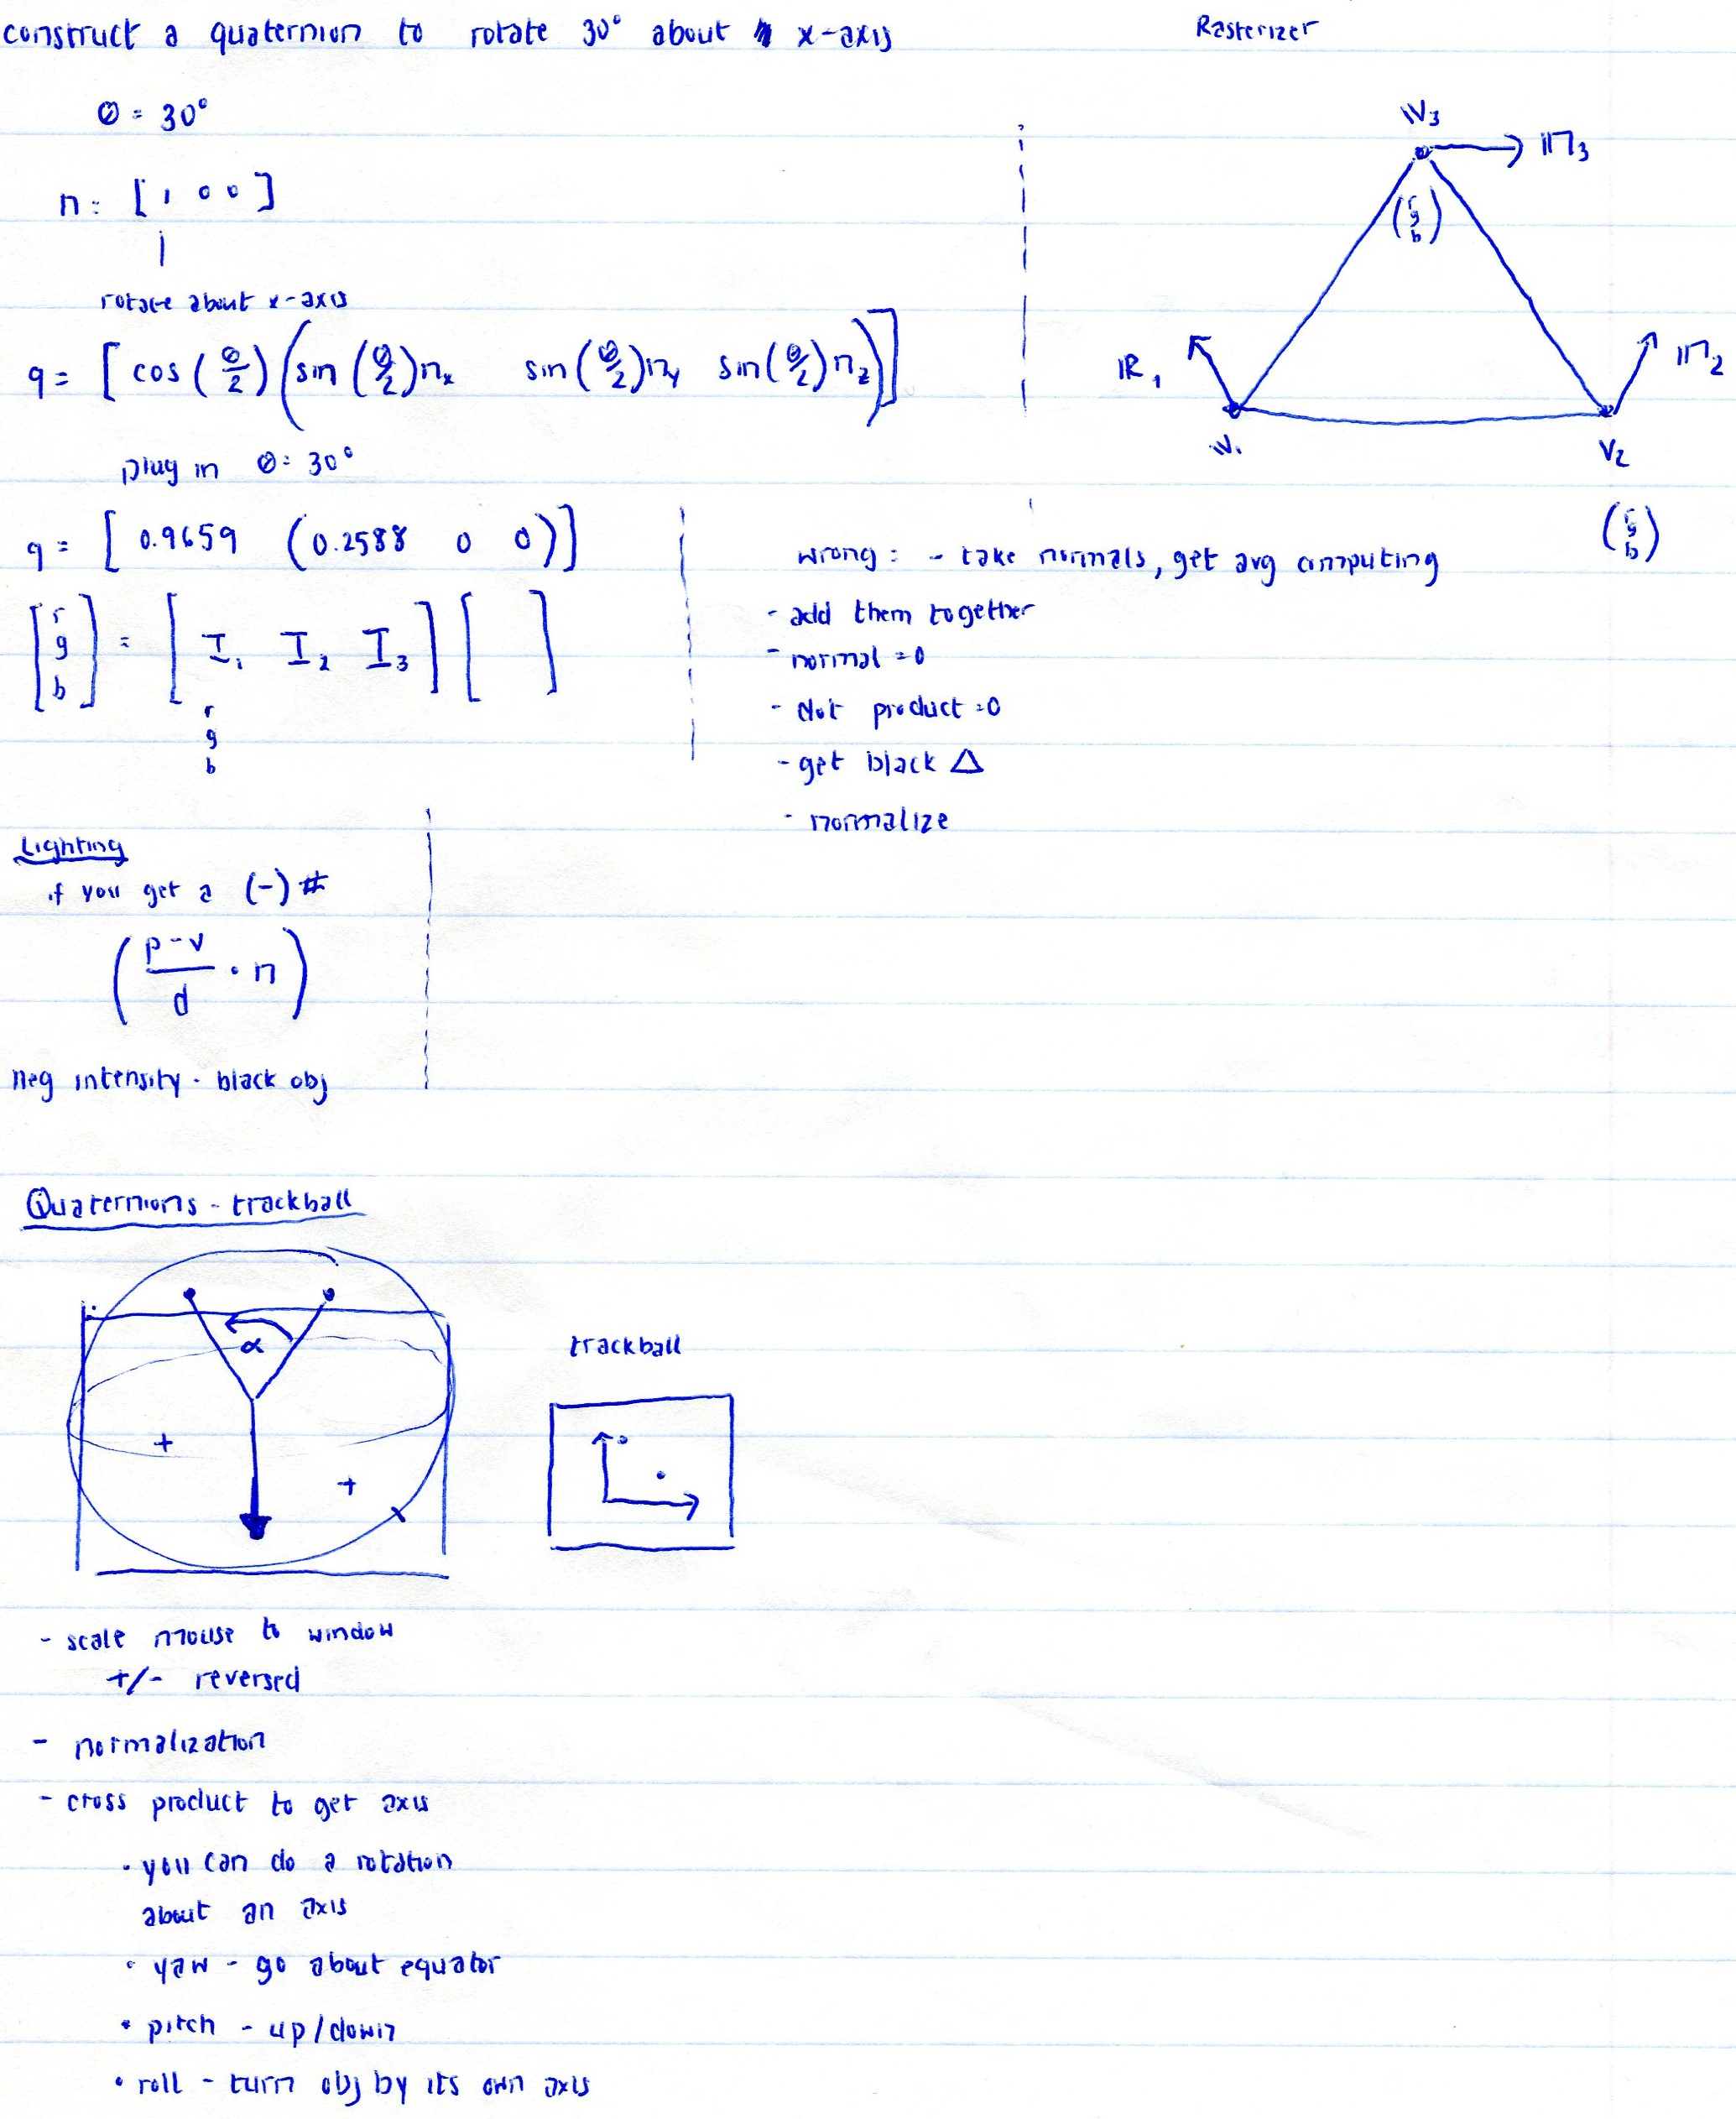 construct a quaternion to rotate 30° about x-axis
θ = 30°
n = [1 0 0]
rotate about x-axis
q = [cos(θ/2) (sin(θ/2)nx sin(θ/2)ny sin(θ/2)nz)]
plug in θ = 30°
q = [0.9659 (0.2588 0 0)]
[r g b] = [I1 I2 I3] [ ]
r
g
b
Rasterizer
V3
n3
(r g b)
n1
n2
V1
V2
(r g b)
wrong: - take normals, get avg computing
- add them together
- normal = 0
- dot product = 0
- get black Δ
- normalize
Lighting
if you get a (-) #
(p-v/d · n)
neg intensity - black obj
Quaternions - trackball
α
+
+
x
trackball
- scale mouse to window
+/- reversed
- normalization
- cross product to get axis
• you can do a rotation
about an axis
• yaw - go about equator
• pitch - up/down
• roll - turn obj by its own axis